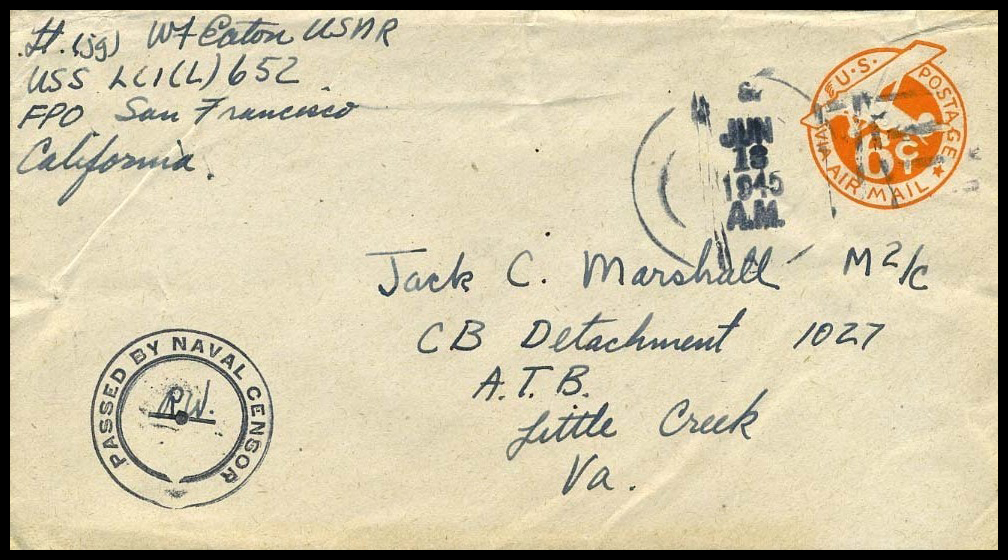 Lt. (jg) WF Eaton USNR
USS LCI(L) 652
FPO San Francisco
California.
&
JUN
18
1945
A.M.
U.S. POSTAGE
VIA AIR MAIL
6¢
Jack C. Marshall M2/c
CB Detachment 1027
A.T.B.
Little Creek
Va.
PASSED BY NAVAL CENSOR